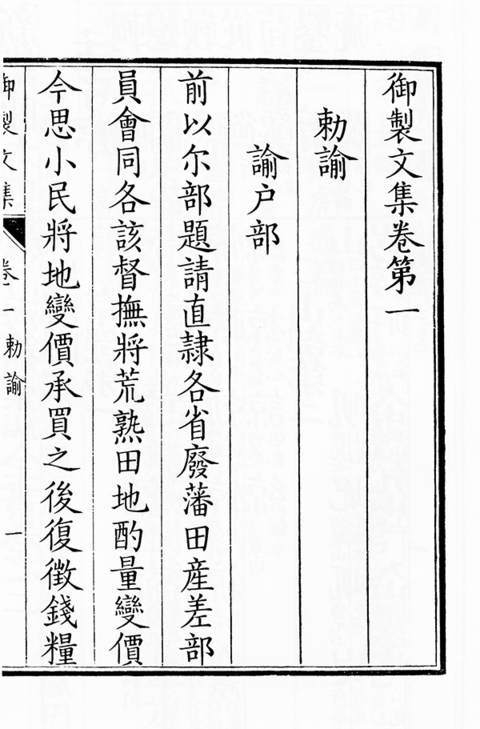 御製文集卷第一
勅諭
諭户部
前以尔部題請直隷各省廢藩田産差部
員會同各該督撫將荒熟田地酌量變價
今思小民將地變價承買之後復徴錢糧
御製文集
卷一
勅諭
一